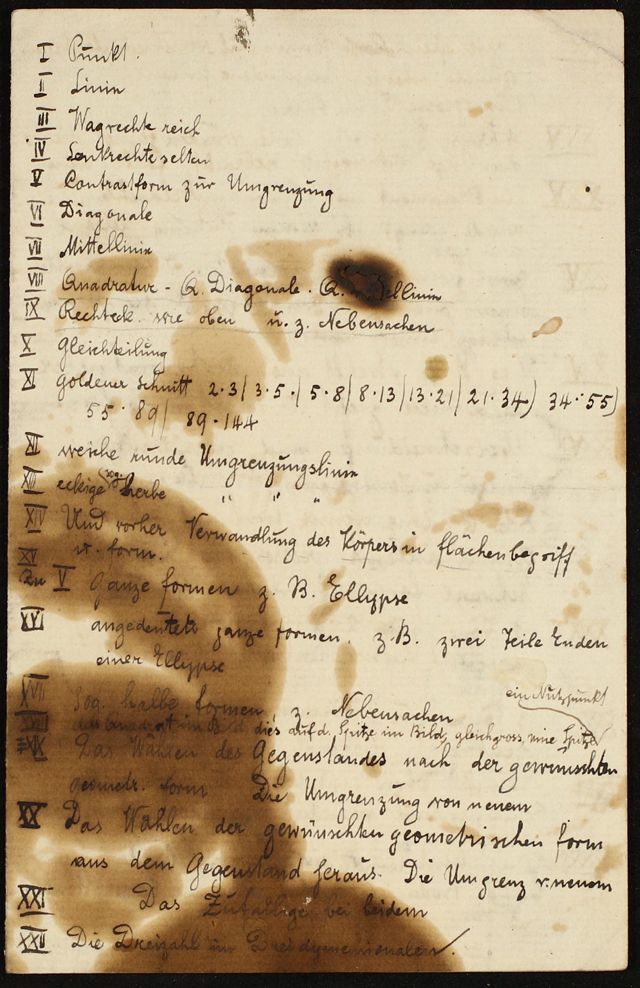 I Punkt.
II Linie
III Wagrechte reich
IV Senkrechte selten
V Contrastform zur Umgrenzung
VI Diagonale
VII Mittellinie
VIII Quadratur - Q. Diagonale. Q. ellinie
IX Rechteck. wie oben u. z. Nebensachen
X Gleichteilung
XI goldener Schnitt 2·3/ 3·5·/ 5·8/ 8·13/ 13·21/ 21·34) 34·55)
55·89/ 89·144
XII weiche runde Umgrenzungslinie
XIII eckige sog. herbe " " "
XIV Und vorher Verwandlung des Körpers in flächenbegriff
XV u. form.
Zu V ganze formen z. B. Ellypse
XVI angedeutete ganze formen. z.B. zwei Teile Enden
einer Ellypse
XVII sog. halbe formen z. Nebensachen
ein Nutzpunkt
im Bild dies auf d. Spitze im Bild, gleichgross, eine Spitze
XIX Das Wählen des Gegenstandes nach der gewünschten
geometr. form Die Umgrenzung von neuem
XX Das Wählen der gewünschten geometrischen form
aus dem Gegenstand heraus. Die Umgrenz v. neuem
XXI Das Zufällige bei beidem
XXII Die Dreizahl im Dreidymensionalen.